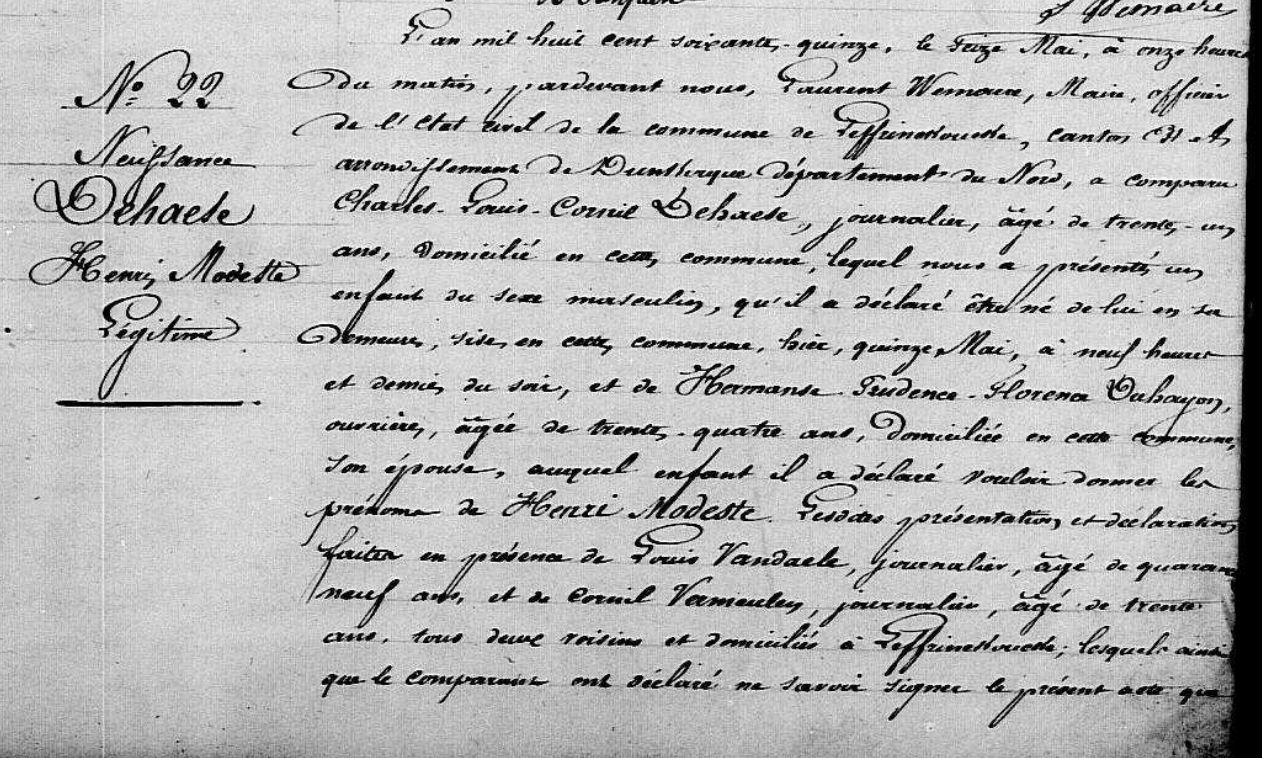 L'an mil huit cent soixante-quinze, le seize Mai, à onze heures
du matin, pardevant nous, Laurent Wemaere, Maire, officier
de l'Etat civil de la commune de Leffrinckoucke, canton Est et
arrondissement de Dunkerque département du Nord, a comparu
Charles-Louis-Cornil Dehaese, journalier, âgé de trente-un
ans, domicilié en cette commune, lequel nous a présenté un
enfant du sexe masculin, qu'il a déclaré être né de lui en sa
demeure, sise en cette commune, hier, quinze Mai, à neuf heures
et demie du soir, et de Hermanse Prudence-Florence Duhayon,
ouvrière, âgée de trente-quatre ans, domiciliée en cette commune,
son épouse, auquel enfant il a déclaré vouloir donner les
prénoms de Henri Modeste. Lesdites présentation et déclaration
faites en présence de Louis Vandaele, journalier, âgé de quarante
neuf ans, et de Cornil Vermeulen, journalier, âgé de trente
ans, tous deux voisins et domiciliés à Leffrinckoucke; lesquels ainsi
que le comparant ont déclaré ne savoir signer le présent acte que
N° 22
Naissance
Dehaese
Henri Modeste
Légitime